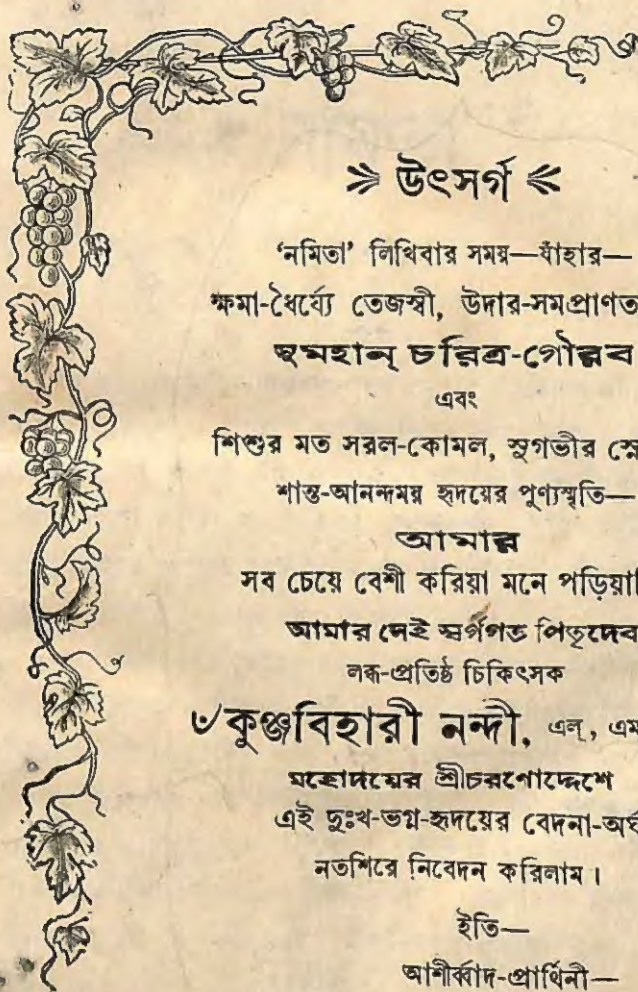 উৎসর্গ
'নমিতা' লিখিবার সময়—যাঁহার—
ক্ষমা-ধৈর্য্যে তেজস্বী, উদার-সমপ্রাণত
সুমহান্ চরিত্র-গৌরব
এবং
শিশুর মত সরল-কোমল, সুগভীর স্নে
শান্ত-আনন্দময় হৃদয়ের পুণ্যস্মৃতি—
আমার
সব চেয়ে বেশী করিয়া মনে পড়িয়া
আমার সেই স্বর্গগত পিতৃদেব
লব্ধ-প্রতিষ্ঠ চিকিৎসক
৺কুঞ্জবিহারী নন্দী, এল্, এম
মহোদয়ের শ্রীচরণোদ্দেশে
এই দুঃখ-ভগ্ন-হৃদয়ের বেদনা-অর্ঘ
নতশিরে নিবেদন করিলাম।
ইতি—
আশীর্ব্বাদ-প্রার্থিনী—